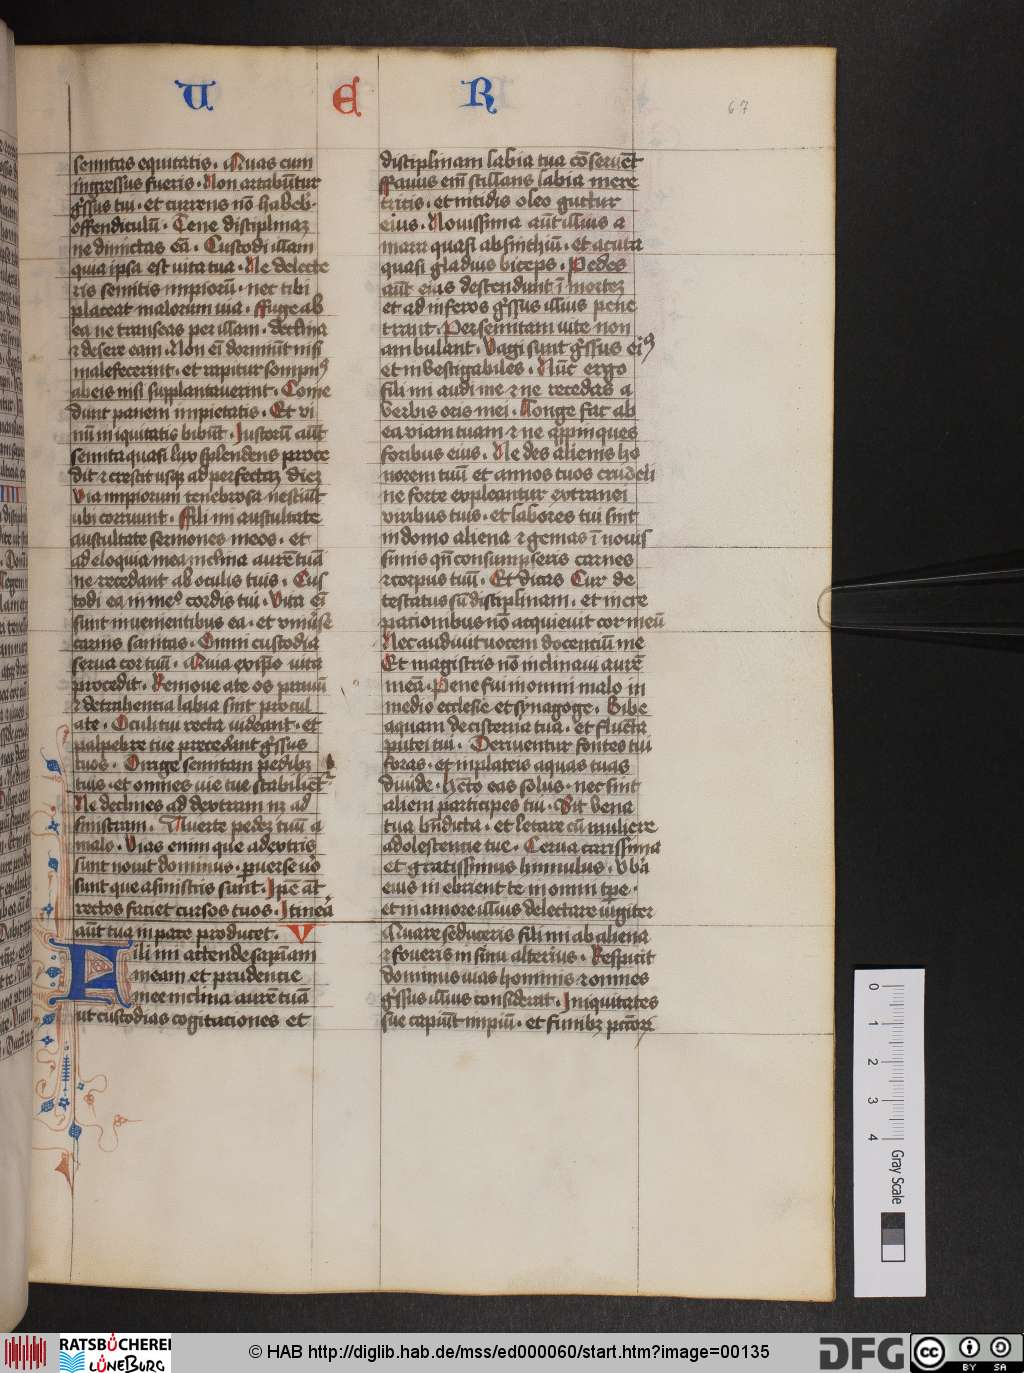 U E R
67
semitas equitatis · Quas cum
ingressus fueris · Non artabūtur
gͥssus tui · et currens nō habeb·
offendiculū · Tene disciplinaꝫ
ne dimictas eā · Custodi illam
quia ipsa est vita tua · Ne delecte
ris semitis impiorū · nec tibi
placeat malorum uia · ffuge ab
ea ne transeas per illam · declina
⁊ desere eam · Non eī dormiūt nisi
malefecerint · et rapitur sompnꝰ
abeis nisi supplantauerint · Come
dunt panem impietatis · Et vi
nū iniquitatis bibūt · Iustorū aūt
semita quasi lux splendens proce
dit ⁊ crescit usqꝫ ad perfectaꝫ dieꝫ
Via impiorum tenebrosa nesciūt
ubi corruunt · ffili mi auscultate
auscultate sermones meos · et
ad eloquia mea inclina aurē tuā
ne recedant ab oculis tuis · Cus
todi ea in meͦ cordis tui · Vita eī
sunt inuenientibus ea · et vniūse
carnis sanitas · Omni custodia
serua cor tuū · Quia ex ip̄o vita
procedit · Remoue a te os prauū
⁊ detrahentia labia sint procul
a te · Oculi tui recta uideant · et
palpebre tue precedant gͥssus
tuos · Dirige semitam pedibꝫ
tuis · et omnes uie tue stabilientͬ
Ne declines ad dextram nꝫ ad
sinistram · Auerte pedeꝫ tuū a
malo · Vias enim que a dextris
sunt nouit dominus · ꝑuerse uō
sunt que a sinistris sunt · Ipē aūt
rectos faciet cursos tuos · Itineā
aūt tua in pace producet · V
Fili mi attende sapiām
meam et prudencie
mee inclina aurē tuā
ut custodias cogitaciones et
disciplinam labia tua cōseruēt
ffauus em̄ stillans labia mere
tricis · et nitidis oleo guttur
eius · Nouissima aūt illius a
mara quasi absinthiū · et acuta
quasi gladius biceps · Pedes
aūt eius descendunt ī morteꝫ
et ad inferos gͥssus illius pene
trant · Per semitam uite non
ambulant · Vagi sunt gͥssus eiꝰ
et inuestigabiles · Nūc ergo
fili mi audi me ⁊ ne recedas a
verbis oris mei · Longe fac ab
ea viam tuam ⁊ ne appinques
foribus eius · Ne des alienis ho
norem tuū et annos tuos crudeli
ne forte expleantur extranei
viribus tuis · et labores tui sint
in domo aliena ⁊ gemas ī nouis
simis qn̄ consumpseris carnes
⁊ corpus tuū · Et dicas Cur de
testatus sū disciplinam · et incre
pacionibus nō acquieuit cor meū
Nec audiuit uocem docentiū me
Et magistris nō inclinaui aurē
meā · Pene fui in omni malo in
medio ecclesie et synagoge · Bibe
aquam de cisterna tua · et fluēta
putei tui · Deriuentur fontes tui
foras · et in plateis aquas tuas
diuide · Hēto eas solus · nec sint
alieni participes tui · Sit vena
tua bn̄dicta · et letare cū muliere
adolescentie tue · Cerua carissima
et gratissimus hinnulus · Vbā
eius in ebrient te in omni tp̄e ·
et in amore illius delectare iūgiter
Quare seduceris fili mi ab aliena
⁊ foueris in sinu alterius · Respicit
dominus uias hominis ⁊ omnes
gͥssus illius considerat · Iniquitates
sue capiūt impiū · et funibꝫ pctorꝝ
0 1 2 3 4
Gray Scale
RATSBÜCHEREI
LÜNEBURG
© HAB http://diglib.hab.de/mss/ed000060/start.htm?image=00135
DFG
cc BY SA